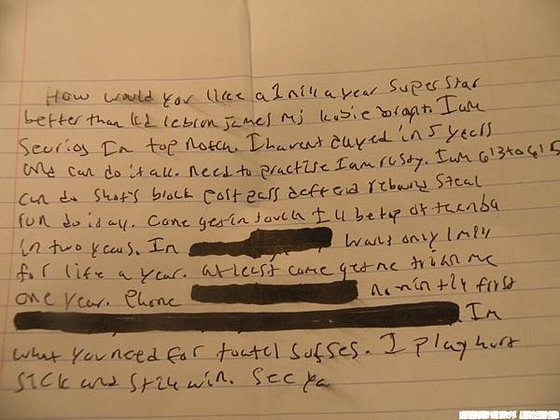 How would you like a 1 mill a year Superstar
better than kd lebron james mj kobie briant. I am
Seurios Im top notch. I havent played in 5 years
and can do it all. need to practise I am rusty. I am 6'3 to 6'5
can do shots block post pass deffend rebound Steal
run do it all. Come get in touch I ll be top of the nba
in two years. Im want only 1 mill
for like a year. at least come get me trian me
one year. Phone no mintly first
Im
what you need for toatel sufses. I play hurt
SICK and still win. See ya